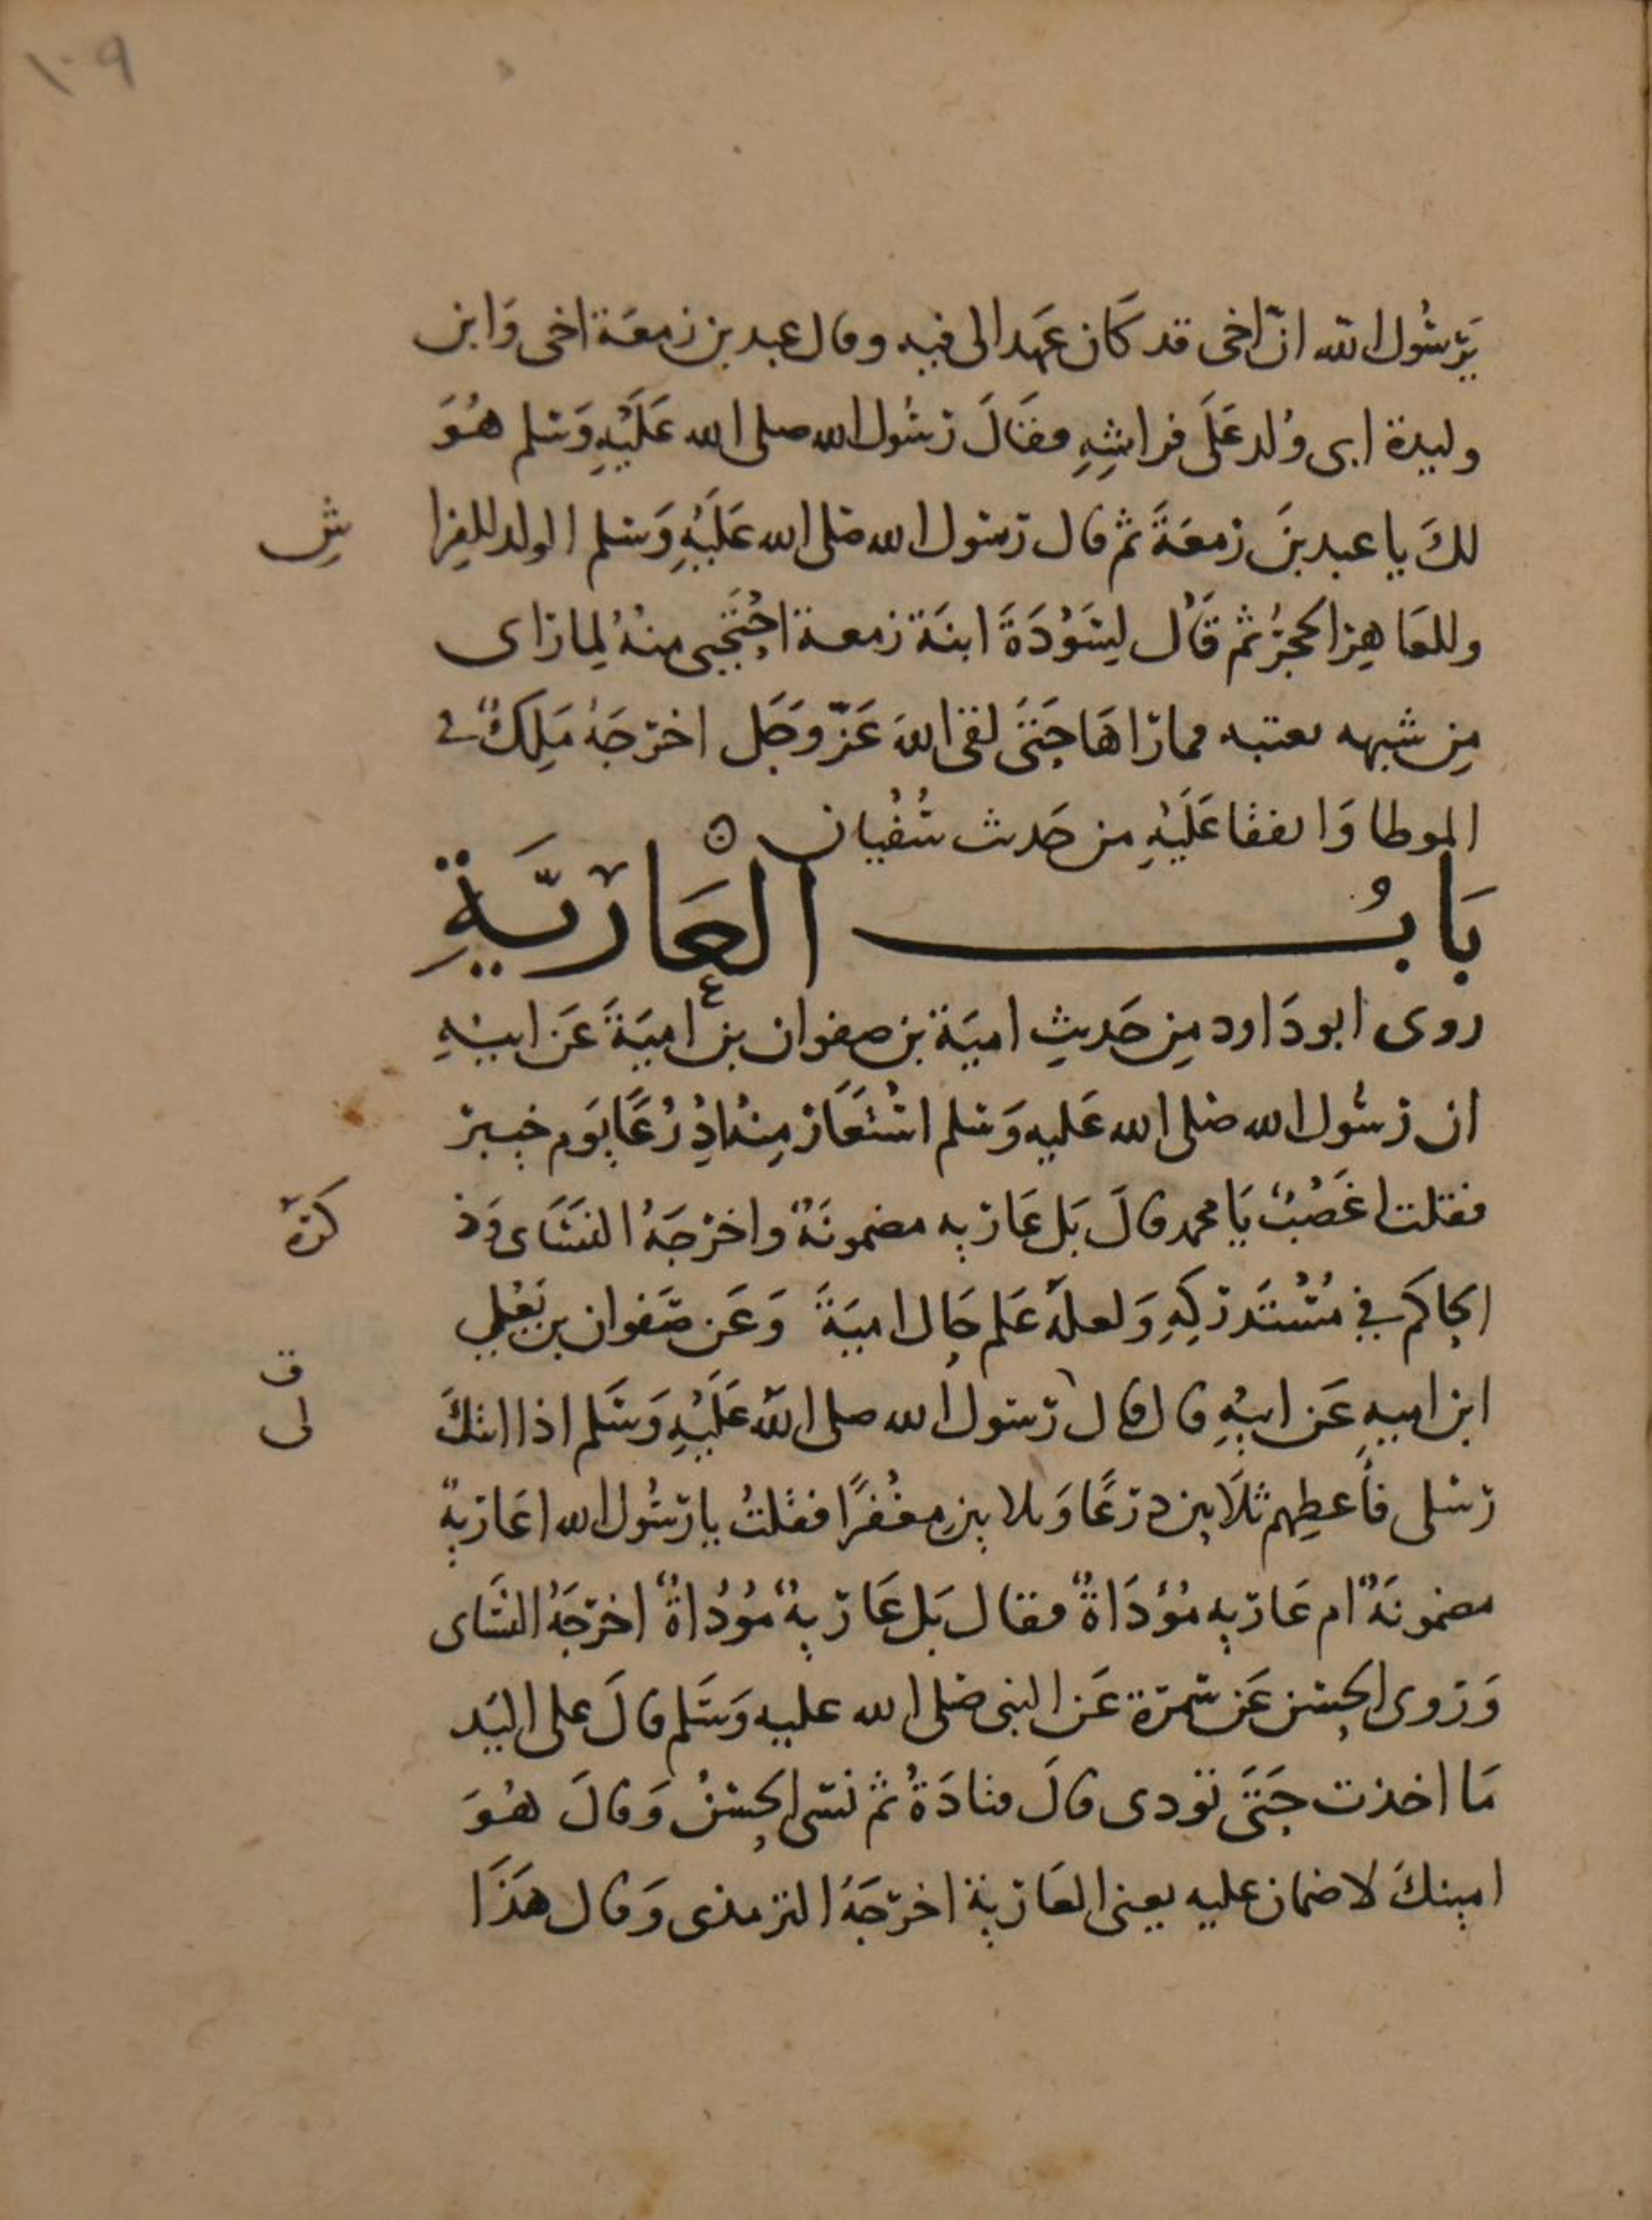 ١٠٩
يرسُول الله انّ اخى قد كَان عَهد الى فيه وقال عبد بن زمعَة اخى وَابن
وليدة ابى وُلد عَلَى فراشِهِ فقَالَ رسُول الله صلى الله عَلَيْهِ وَسلم هُوَ
لكَ يا عبد بنَ زمعَةَ ثم قال رسول الله صلى الله عَلَيْهِ وَسلم الولد للفِرا شِ
وللعَاهِر الحجرُ ثم قَال لِسَوْدَةَ ابنَة زمعة احْتَجِبى منهُ لِما رَاى
مِن شبهه بعتبه فما رَاهَا حَتَّى لقى اللهَ عَزّ وَجَل اخرجَهُ مَلِكٌ في
الموطا وَاتفقا عَلَيْهِ من حَديث سُفْيان ه
بَابُ الْعَارِيَّةِ
روى ابو دَاود مِن حَديثِ اميَة بن صفوان بن اميَةَ عَن ابيْهِ
ان رسُول الله صلى الله عَليه وَسلم اسْتَعَار مِنْه ادْرُعًا يَوم خيبر
فقلت اغَصْبٌ يَا محمد قالَ بَل عَاريه مضمونَةٌ واخرجَهُ النسَاى وَذ كرَهُ
الحاكم في مُسْتَدركِهِ وَلعلهُ عَلم حَال اميَةَ وَعَن صَفوان بن يَعْلي
ابن اميه عَن ابيْهِ قال قال لى رسول الله صلى الله عَلَيْهِ وَسَلم اذا اتتكَ
رسلى فأعطِهم ثلَاثين درعًا وَثلاثين مِغْفرًا فقلتُ يا رَسُول الله اعَاريةٌ
مضمونَةٌ ام عَاريه مُؤدَاةٌ فقال بَل عَاريةٌ مُؤدَاةٌ اخرجَهُ النسَاى
وَروى الحسن عَن سَمرَة عَن النبى صلى الله عليه وَسَلم قالَ على اليَد
مَا اخذت حَتَّى تؤدى قالَ قتادَةُ ثم نسى الحسَنُ وَقالَ هُوَ
امينكَ لا ضمان عليه يعنى العَارية اخرجَهُ الترمذى وَقال هَذَا